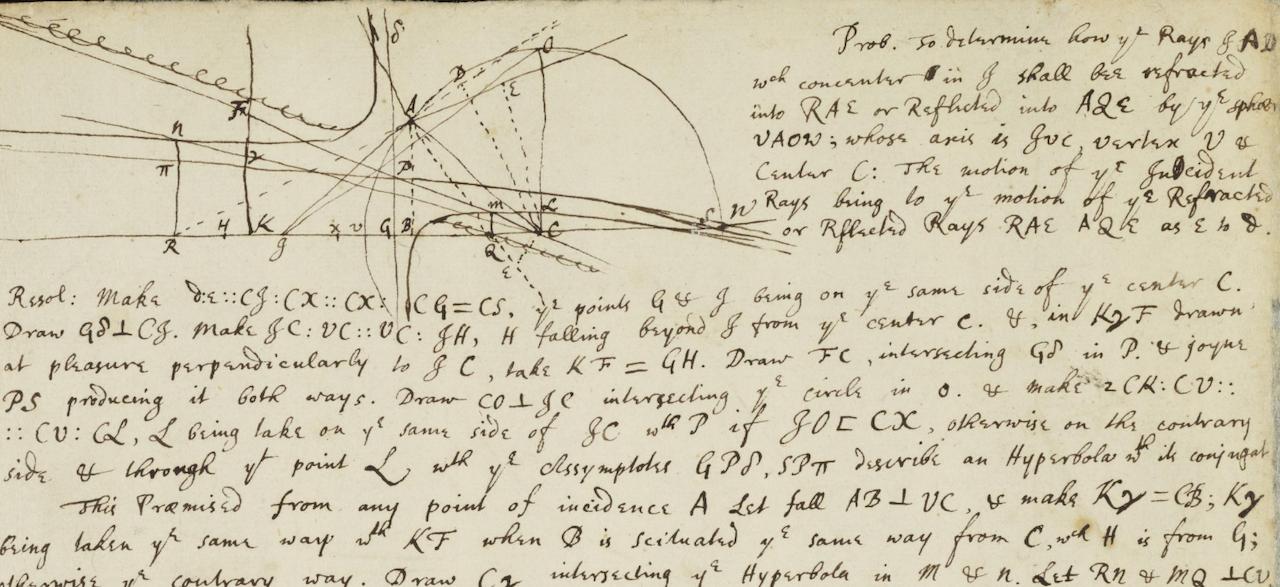 Prob. To determine how yᵉ Rays J AD
wᶜʰ concenter in J shall bee refracted
into RAE or Reflected into AQE by yᵉ spher
VAOW; whose axis is JVC, vertex V &
Center C: The motion of yᵉ Incident
Rays being to yᵉ motion of yᵉ Refracted
or Rflected Rays RAE AQE as E to d.
δ
O
D
E
A
F
n
P
π
γ
L
m
S
W
R
H
K
g
x
v
G
B
Q
C
E
Resol: Make d:E::CJ:CX::CX: CG=CS, yᵉ points G & J being on yᵉ same side of yᵉ center C.
Draw Gδ⊥CJ. Make JC:VC::VC:JH, H falling beyond J from yᵉ center C. &, in KγF drawn
at pleasure perpendicularly to JC, take KF=GH. Draw FC, intersecting Gδ in P. & joyne
PS producing it both ways. Draw CO⊥JC intersecting yᵉ circle in O. & make 2CK:CV::
::CV:CL, L being take on yᵉ same side of JC wᵗʰ P if JO⊏CX, otherwise on the contrary
side & through yᵗ point L, wᵗʰ yᵉ Assymptotes GPδ, SPπ describe an Hyperbola wᵗʰ its conjugat
This Præmised from any point of incidence A Let fall AB⊥VC, & make Kγ=CB; Kγ
being taken yᵉ same way wᵗʰ KF when B is scituated yᵉ same way from C, wᶜʰ H is from G;
otherwise yᵉ contrary way. Draw Cγ intersecting yᵉ Hyperbola in M & n. Let RN & MQ ⊥CV